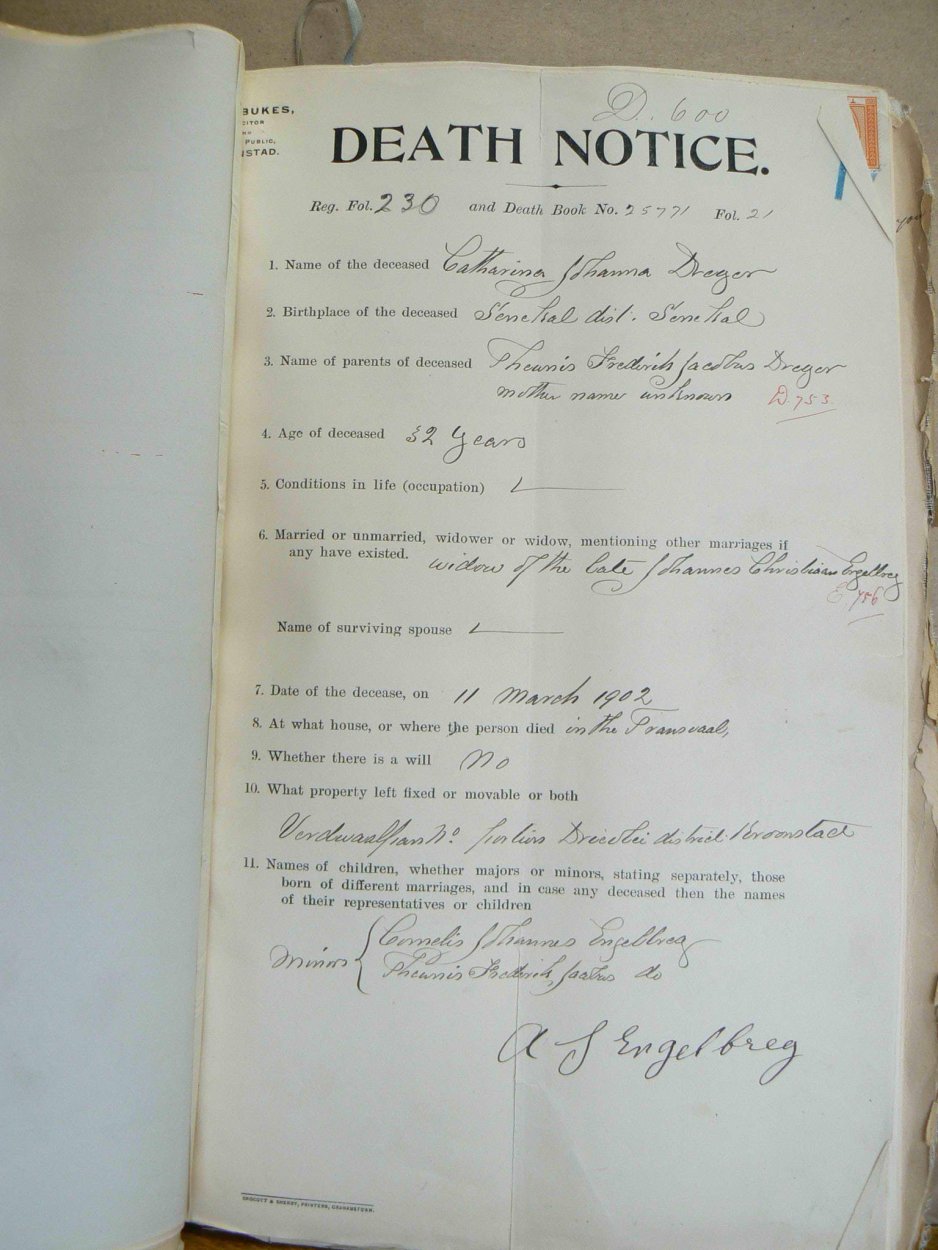 BUKES,
CITOR
PUBLIC,
STAD.
D. 600
DEATH NOTICE.
Reg. Fol. 230 and Death Book No. 25771 Fol. 21
1. Name of the deceased Catharina Johanna Dreyer
2. Birthplace of the deceased Senekal dist. Senekal
3. Name of parents of deceased Theunis Frederik Jacobus Dreyer
mother name unknown D. 753.
4. Age of deceased 32 Years
5. Conditions in life (occupation)
6. Married or unmarried, widower or widow, mentioning other marriages if
any have existed. widow of the late Johannes Christiaan Engelbreg
E. 756
Name of surviving spouse
7. Date of the decease, on 11 March 1902
8. At what house, or where the person died in the Transvaal,
9. Whether there is a will No
10. What property left fixed or movable or both
No. portion district Kroonstad
11. Names of children, whether majors or minors, stating separately, those
born of different marriages, and in case any deceased then the names
of their representatives or children
minors { Cornelis Johannes Engelbreg
Theunis Frederik Jacobus do
A J Engelbreg
GROCOTT & SHERRY, PRINTERS, GRAHAMSTOWN.